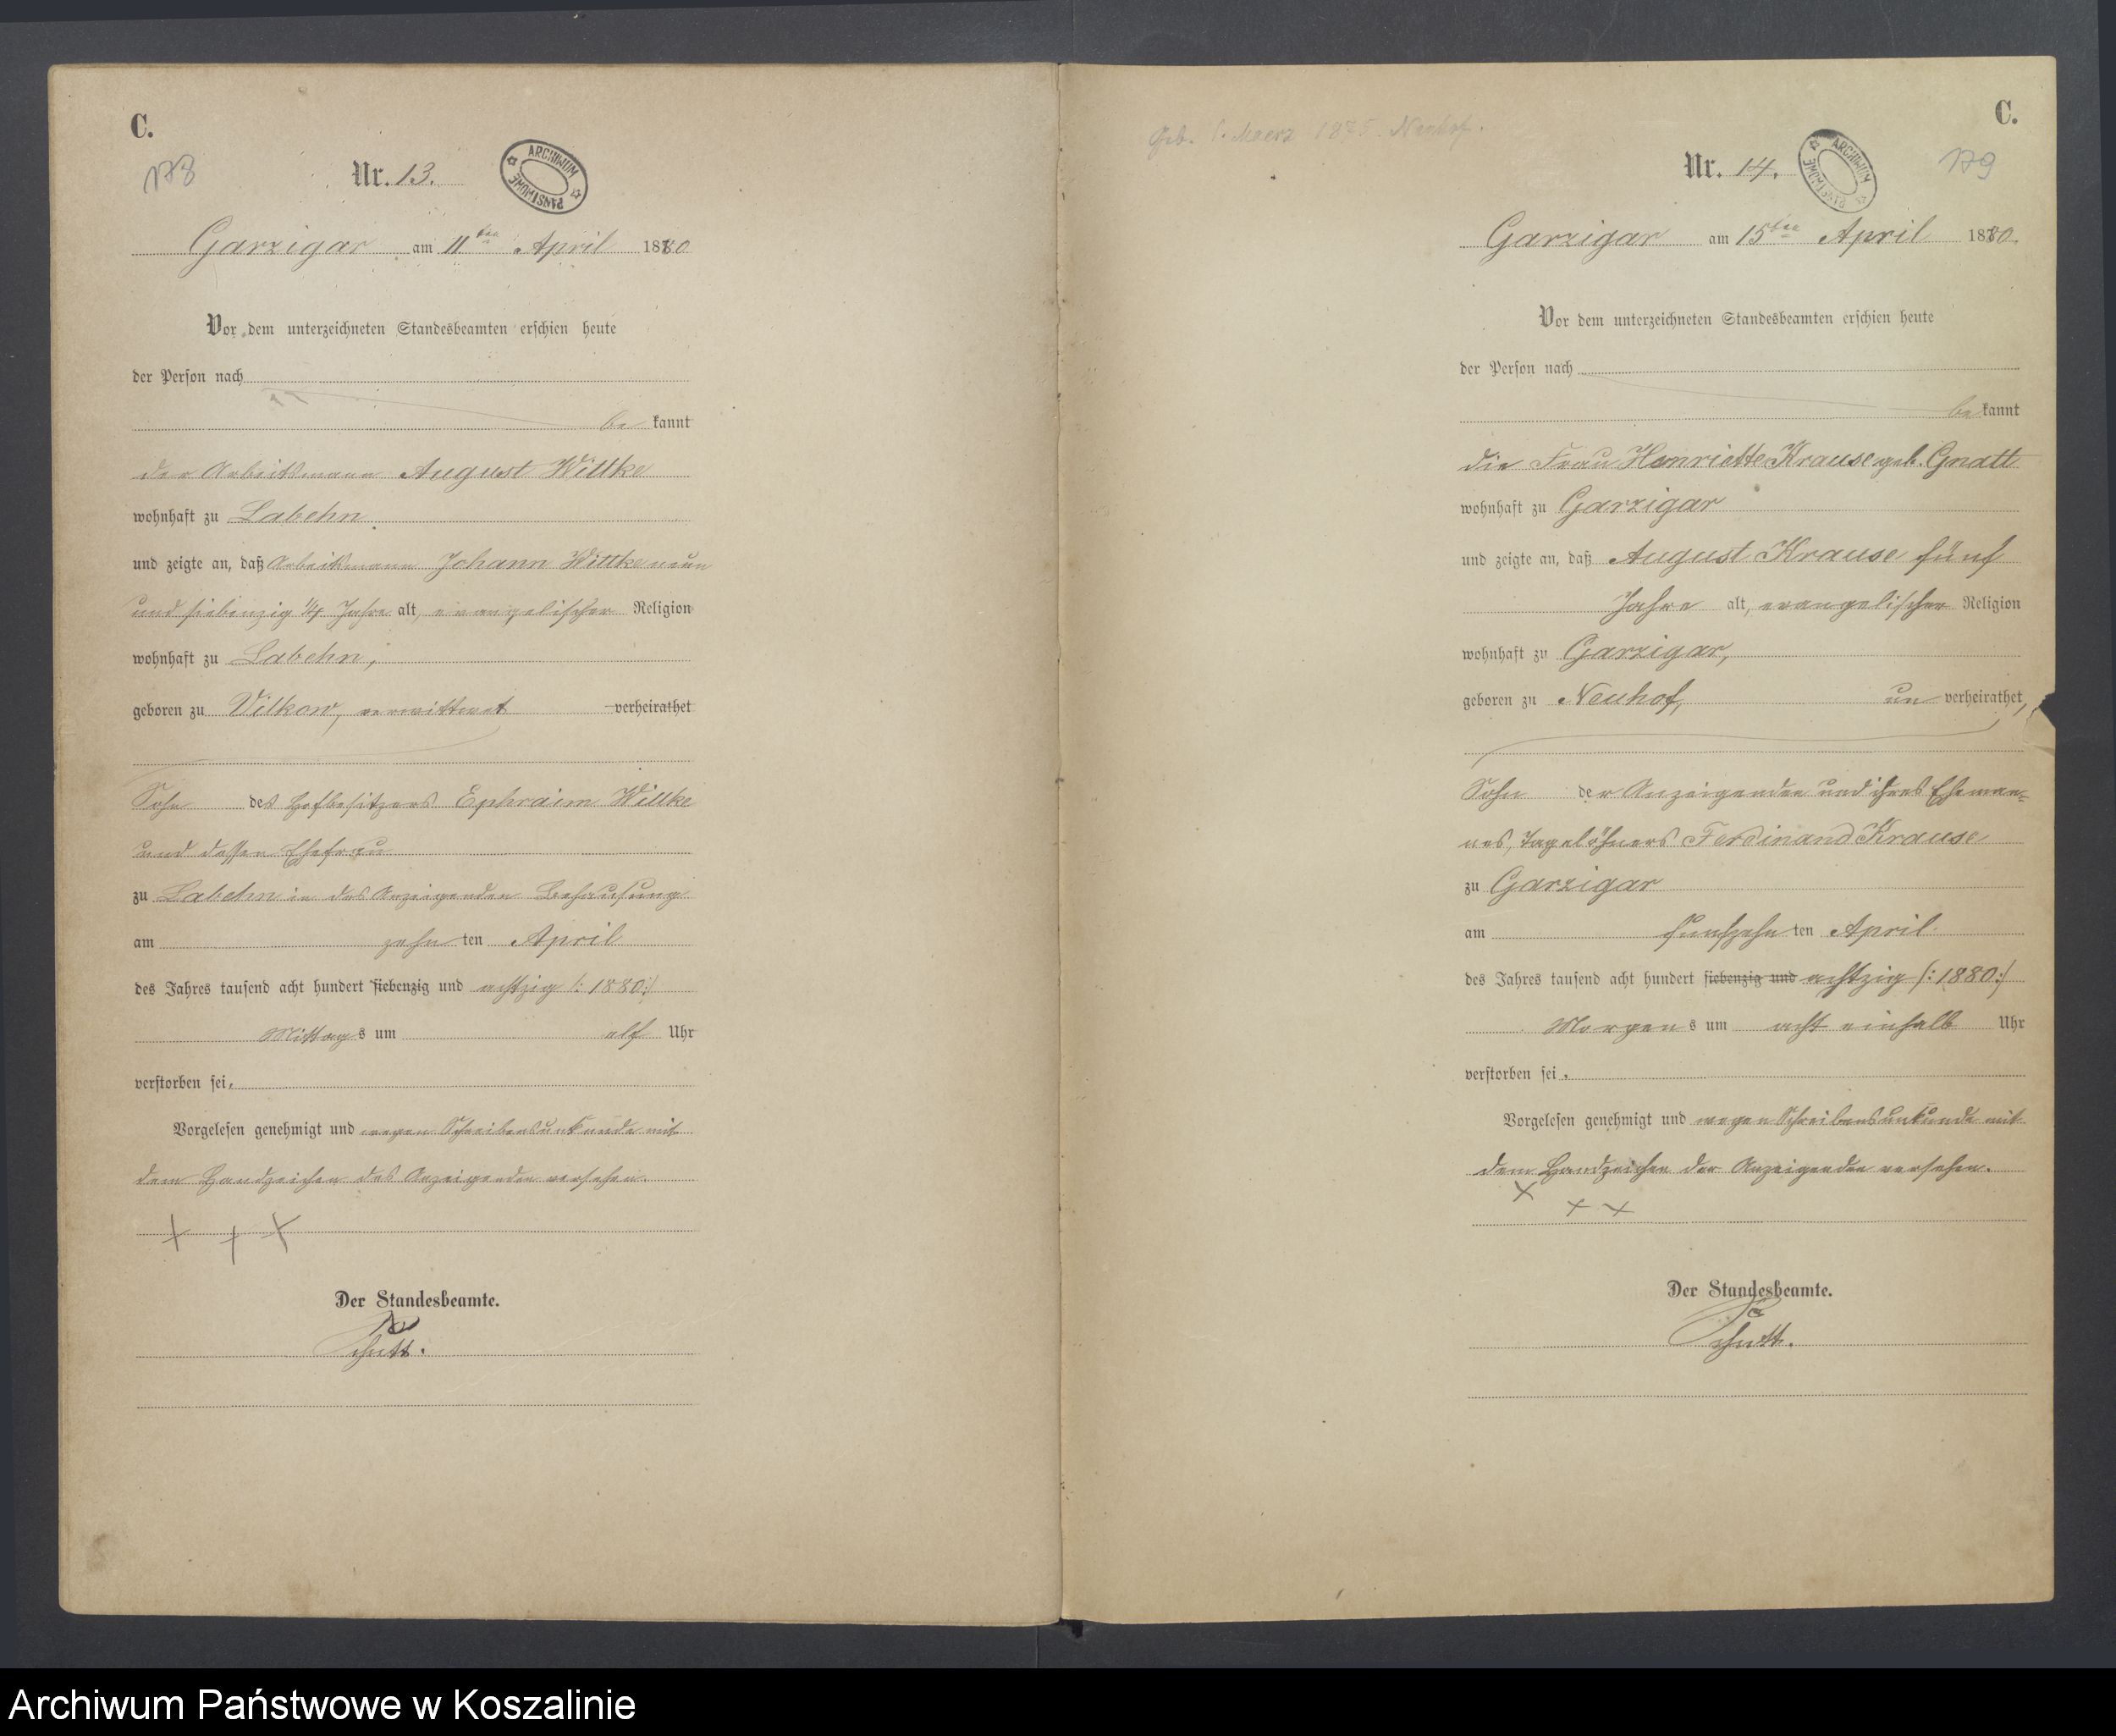 C.
178
Nr. 13.
ARCHIWUM PAŃSTWOWE
Garzigar am 11ten April 1880
Vor dem unterzeichneten Standesbeamten erschien heute
der Person nach
be kannt
der Arbeitsmann August Wittke
wohnhaft zu Labehn
und zeigte an, daß Arbeitsmann Johann Wittke neun
und siebenzig 1/4 Jahre alt, evangelischer Religion
wohnhaft zu Labehn,
geboren zu Vilkow, verwittwet verheirathet
Sohn des Hofbesitzers Ephraim Wittke
und dessen Ehefrau
zu Labehn in des Anzeigenden Behausung
am zehn ten April
des Jahres tausend acht hundert siebenzig und achtzig /: 1880 :/
Mittags um elf Uhr
verstorben sei.
Vorgelesen genehmigt und wegen Schreibensunkunde mit
dem Handzeichen des Anzeigenden versehen.
+ + +
Der Standesbeamte.
Schutt.
C.
Geb. Maerz 1875. Neuhof.
179
Nr. 14.
ARCHIWUM PAŃSTWOWE
Garzigar am 15ten April 1880.
Vor dem unterzeichneten Standesbeamten erschien heute
der Person nach
be kannt
die Frau Henriette Krause geb. Gnatt
wohnhaft zu Garzigar
und zeigte an, daß August Krause fünf
Jahre alt, evangelischer Religion
wohnhaft zu Garzigar,
geboren zu Neuhof, un verheirathet,
Sohn der Anzeigenden und ihres Eheman=
nes, Tagelöhners Ferdinand Krause
zu Garzigar
am funfzehn ten April
des Jahres tausend acht hundert siebenzig und achtzig /: 1880 :/
Morgens um acht einhalb Uhr
verstorben sei.
Vorgelesen genehmigt und wegen Schreibensunkunde mit
dem Handzeichen der Anzeigenden versehen.
+ + +
Der Standesbeamte.
Schutt.
Archiwum Państwowe w Koszalinie